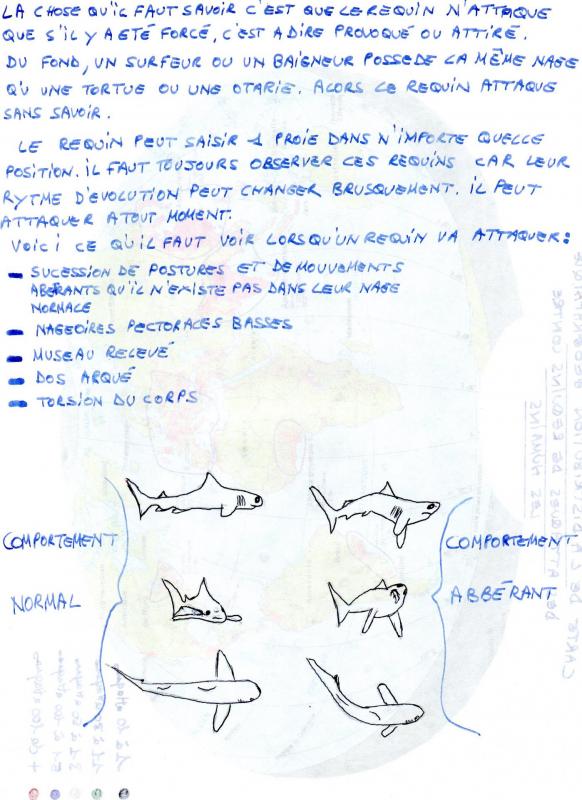 LA CHOSE QU'IL FAUT SAVOIR C'EST QUE LE REQUIN N'ATTAQUE
QUE S'IL Y A ÉTÉ FORCÉ, C'EST A DIRE PROVOQUÉ OU ATTIRÉ.
DU FOND, UN SURFEUR OU UN BAIGNEUR POSSEDE LA MÊME NAGE
QU'UNE TORTUE OU UNE OTARIE. ALORS LE REQUIN ATTAQUE
SANS SAVOIR.
LE REQUIN PEUT SAISIR 1 PROIE DANS N'IMPORTE QUELLE
POSITION. IL FAUT TOUJOURS OBSERVER CES REQUINS CAR LEUR
RYTME D'EVOLUTION PEUT CHANGER BRUSQUEMENT. IL PEUT
ATTAQUER A TOUT MOMENT.
VOICI CE QU'IL FAUT VOIR LORSQU'UN REQUIN VA ATTAQUER:
- SUCESSION DE POSTURES ET DE MOUVEMENTS
ABERANTS QU'IL N'EXISTE PAS DANS LEUR NAGE
NORMALE
- NAGEOIRES PECTORALES BASSES
- MUSEAU RELEVÉ
- DOS ARQUÉ
- TORSION DU CORPS
COMPORTEMENT
NORMAL
COMPORTEMENT
ABBÉRANT